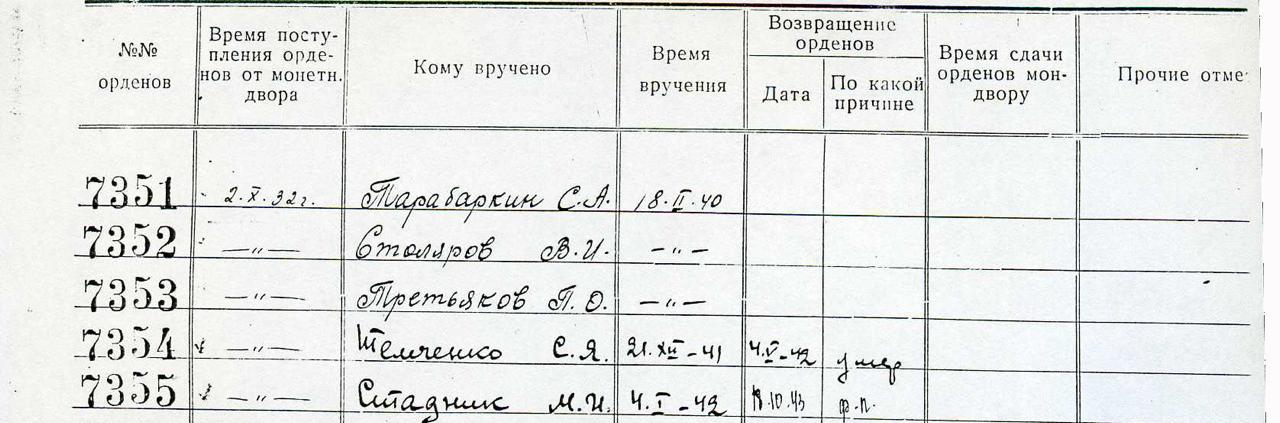 №№ орденов
Время поступления орденов от монетн. двора
Кому вручено
Время вручения
Возвращение орденов
Дата
По какой причине
Время сдачи орденов мон- двору
Прочие отме
7351 2.X.32г. Тарабаркин С.А. 18.II.40
7352 —"— Столяров В.И. —"—
7353 —"— Третьяков П.О. —"—
7354 —"— Шемченко С.Я. 21.XII-41 4.V-42 умер
7355 —"— Стадник М.И. 4.I-42 18.10.43 ф.п.